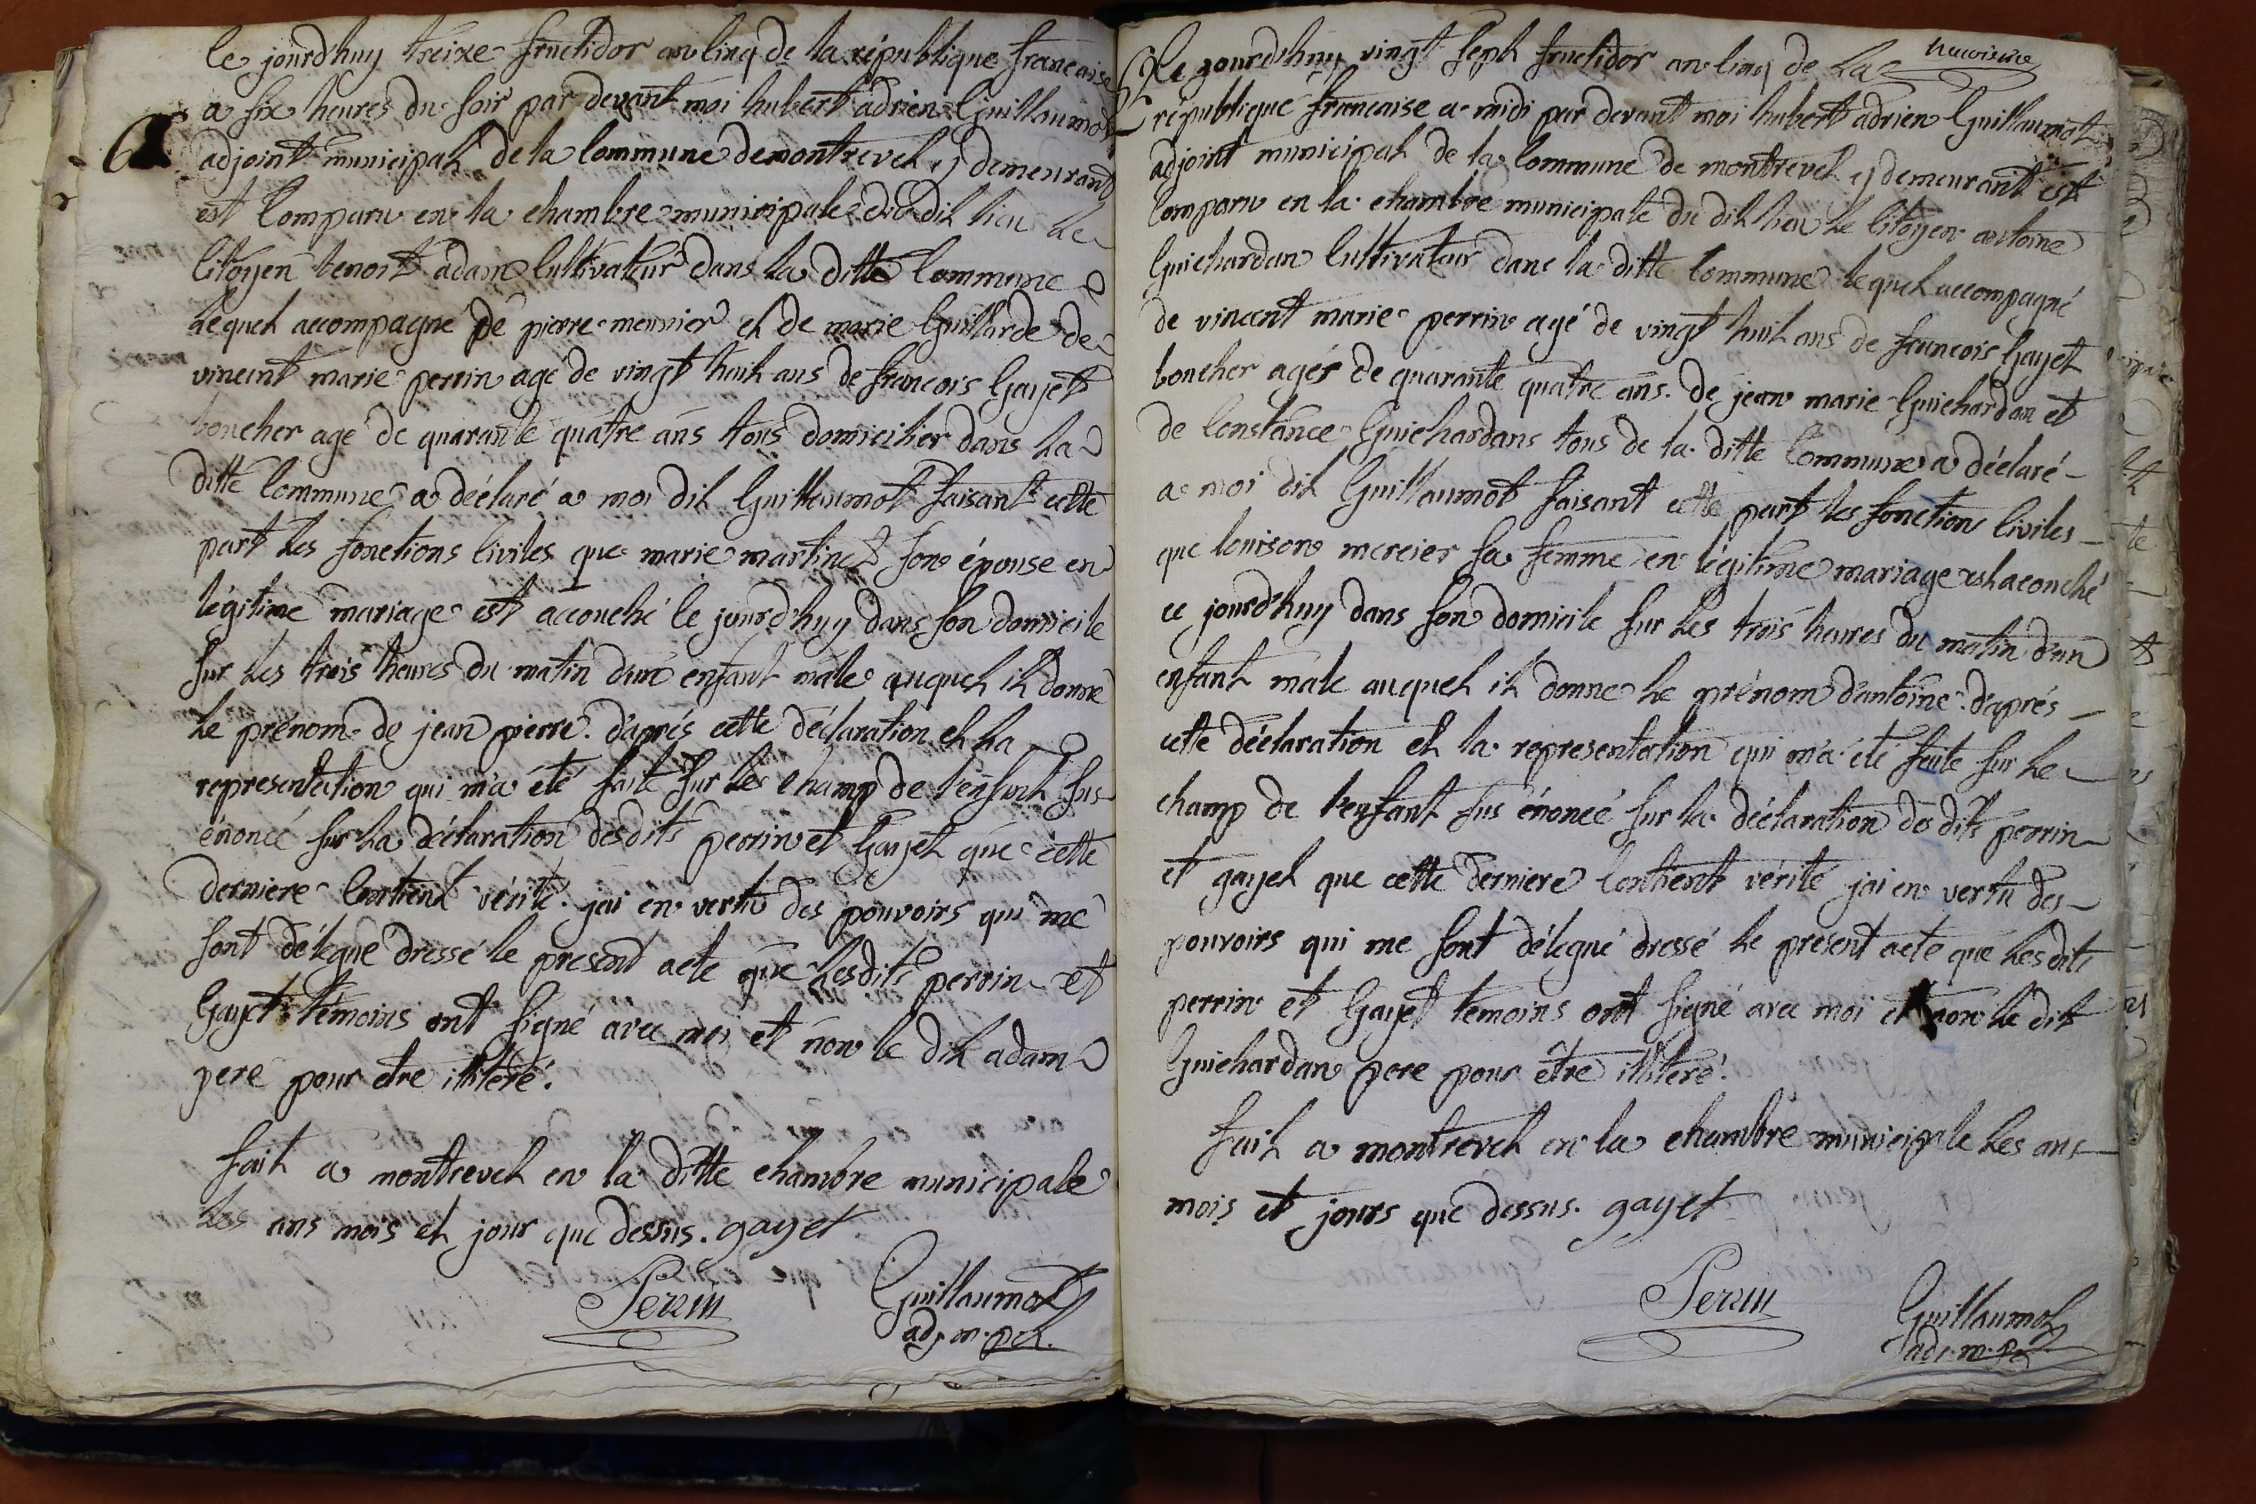 le jourd'huy treize fructidor an cinq de la république francaise
a six heures du soir par devant moi hubert adrien Guillaumot
adjoint municipal de la Commune de montrevel y demeurant
est Comparu en la chambre municipale du dit lieu le
Citoyen benoit adam Cultivateur dans la ditte Commune
lequel accompagne de pierre meunier et de marie Guillarde de
vincent marie perrin age de vingt huit ans de francois Gayet
boucher age de quarante quatre ans tous domicilier dans la
ditte Commune a déclaré a moi dit Guillaumot faisant cette
part les fonctions Civiles que marie martine son épouse en
légitime mariage est accouché le jourd'huy dans son domicile
sur les trois heures du matin d'un enfant mâle auquel il donne
le prénom de jean pierre. d'aprés cette déclaration et la
representation qui m'a été faite sur le champ de l'enfant sus
énoncé sur la déclaration desdits perrin et Gayet que cette
derniere Contient vérité. jai en vertu des pouvoirs qui me
sont délegué dressé le present acte que lesdits perrin et
Gayet témoins ont signé avec moi et non le dit adam
pere pour etre illiteré.
fait a montrevel en la ditte chambre municipale
les ans mois et jour que dessus. gayet
Perrin Guillaumot
adj. m. pal.
61
Le jourd'huy vingt sept fructidor an cinq de la
république francaise a midi par devant moi hubert adrien Guillaumot
adjoint municipal de la Commune de montrevel y demeurant est
Comparu en la chambre municipale du dit lieu le Citoyen antoine
Guichardan Cultivateur dans la ditte Commune lequel accompagné
de vincent marie perrin agé de vingt huit ans de francois Gayet
boucher agés de quarante quatre ans. de jean marie Guichardan et
de Constance Guichardans tous de la ditte Commune a déclaré
a moi dit Guillaumot faisant cette part les fonctions Civiles
que louison mercier sa femme en légitime mariage est acouché
ce jourd'huy dans son domicile sur les trois heures du matin d'un
enfant mâle auquel il donne le prénom d'antoine. d'aprés
cette déclaration et la representation qui m'a été faite sur le
champ de l'enfant sus énoncé sur la déclaration desdits perrin
et gayet que cette derniere Contient vérité jai en vertu des
pouvoirs qui me sont délegué dressé le present acte que lesdits
perrin et Gayet temoins ont signé avec moi et non le dit
Guichardan pere pour être illiteré.
fait a montrevel en la chambre municipale les ans
mois et jours que dessus. gayet
Perrin Guillaumot